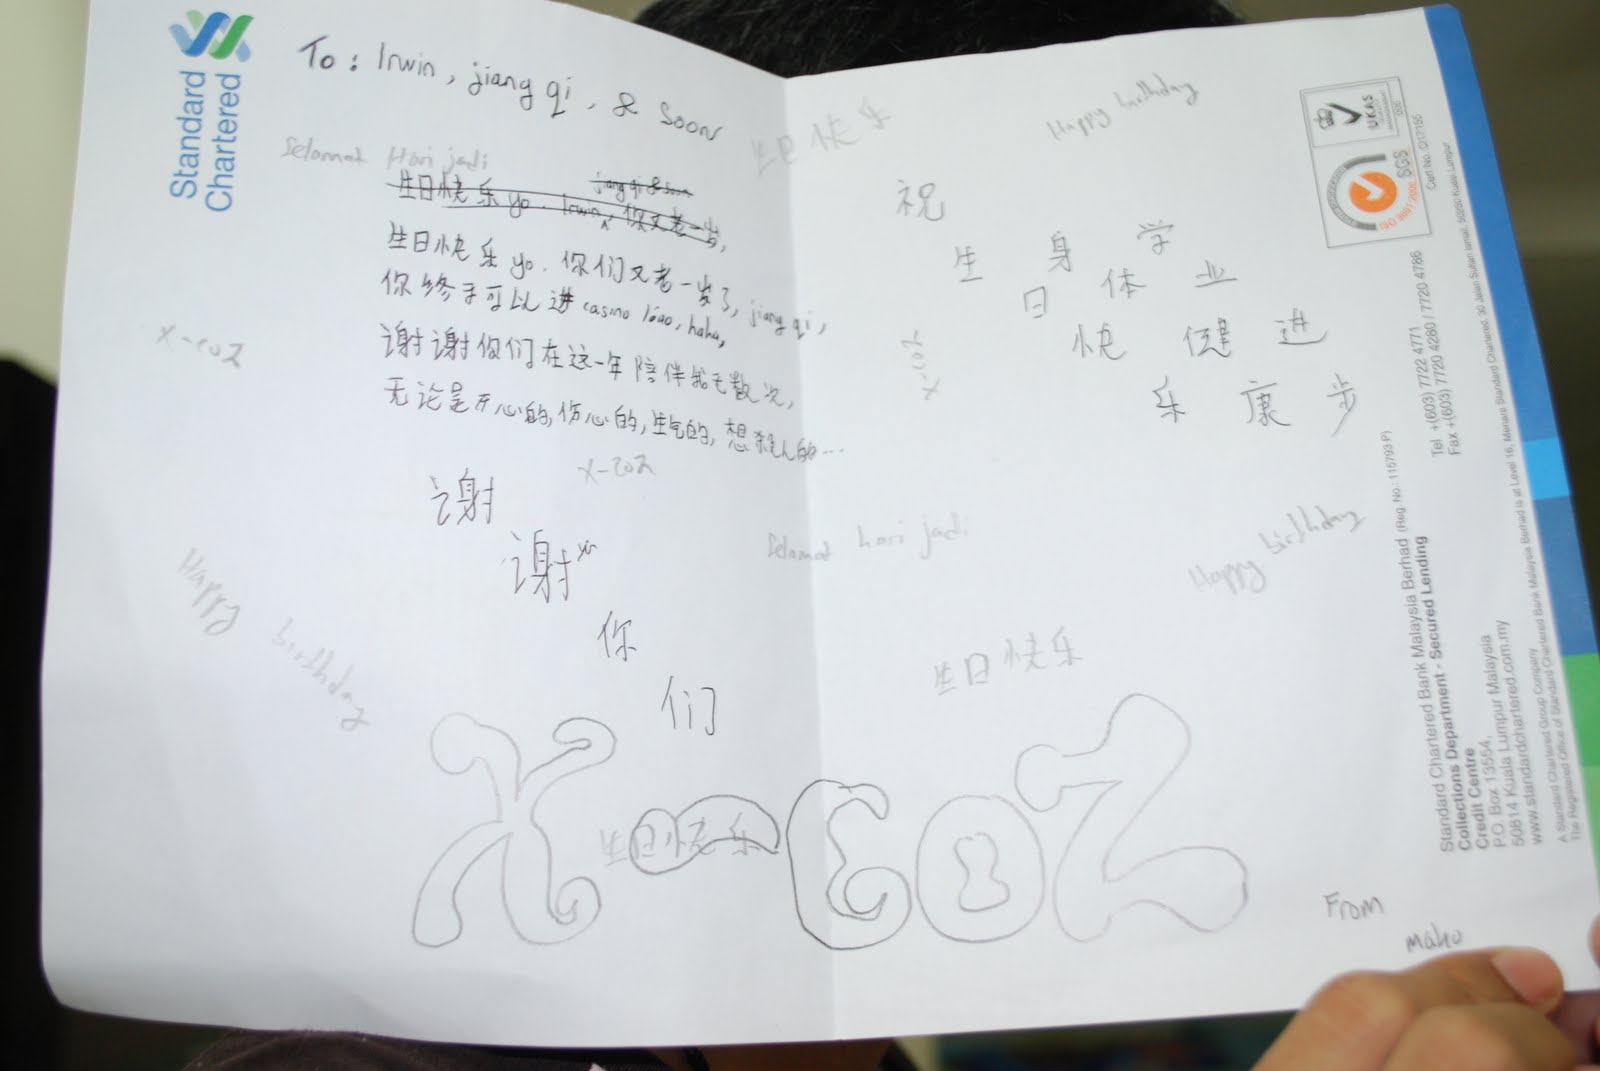 Standard
Chartered
To: Irwin, jiang qi, & Soon
Selamat Hari jadi
jiang qi & soon
生日快乐 yo. Irwin, 你又老一岁,
生日快乐 yo. 你们又老一岁了, jiang qi,
你终于可以进 casino liao, haha,
谢谢你们在这一年陪伴我无数次,
无论是开心的, 伤心的, 生气的, 想杀人的...
x-coz
x-coz
谢
谢
你
们
Happy birthday
X-COZ
生日快乐
生日快乐
Happy birthday
祝
生 身 学
日 体 业
快 健 进
乐 康 步
x-coz
Selamat hari jadi
Happy birthday
生日快乐
From
maho
UKAS
SGS
Standard Chartered Bank Malaysia Berhad (Reg. No.: 115793 P)
Collections Department - Secured Lending
Credit Centre
P.O. Box 13554,
50814 Kuala Lumpur Malaysia
www.standardchartered.com.my
Tel +(603) 7722 4771
Fax +(603) 7720 4280 / 7720 4786
A Standard Chartered Group Company